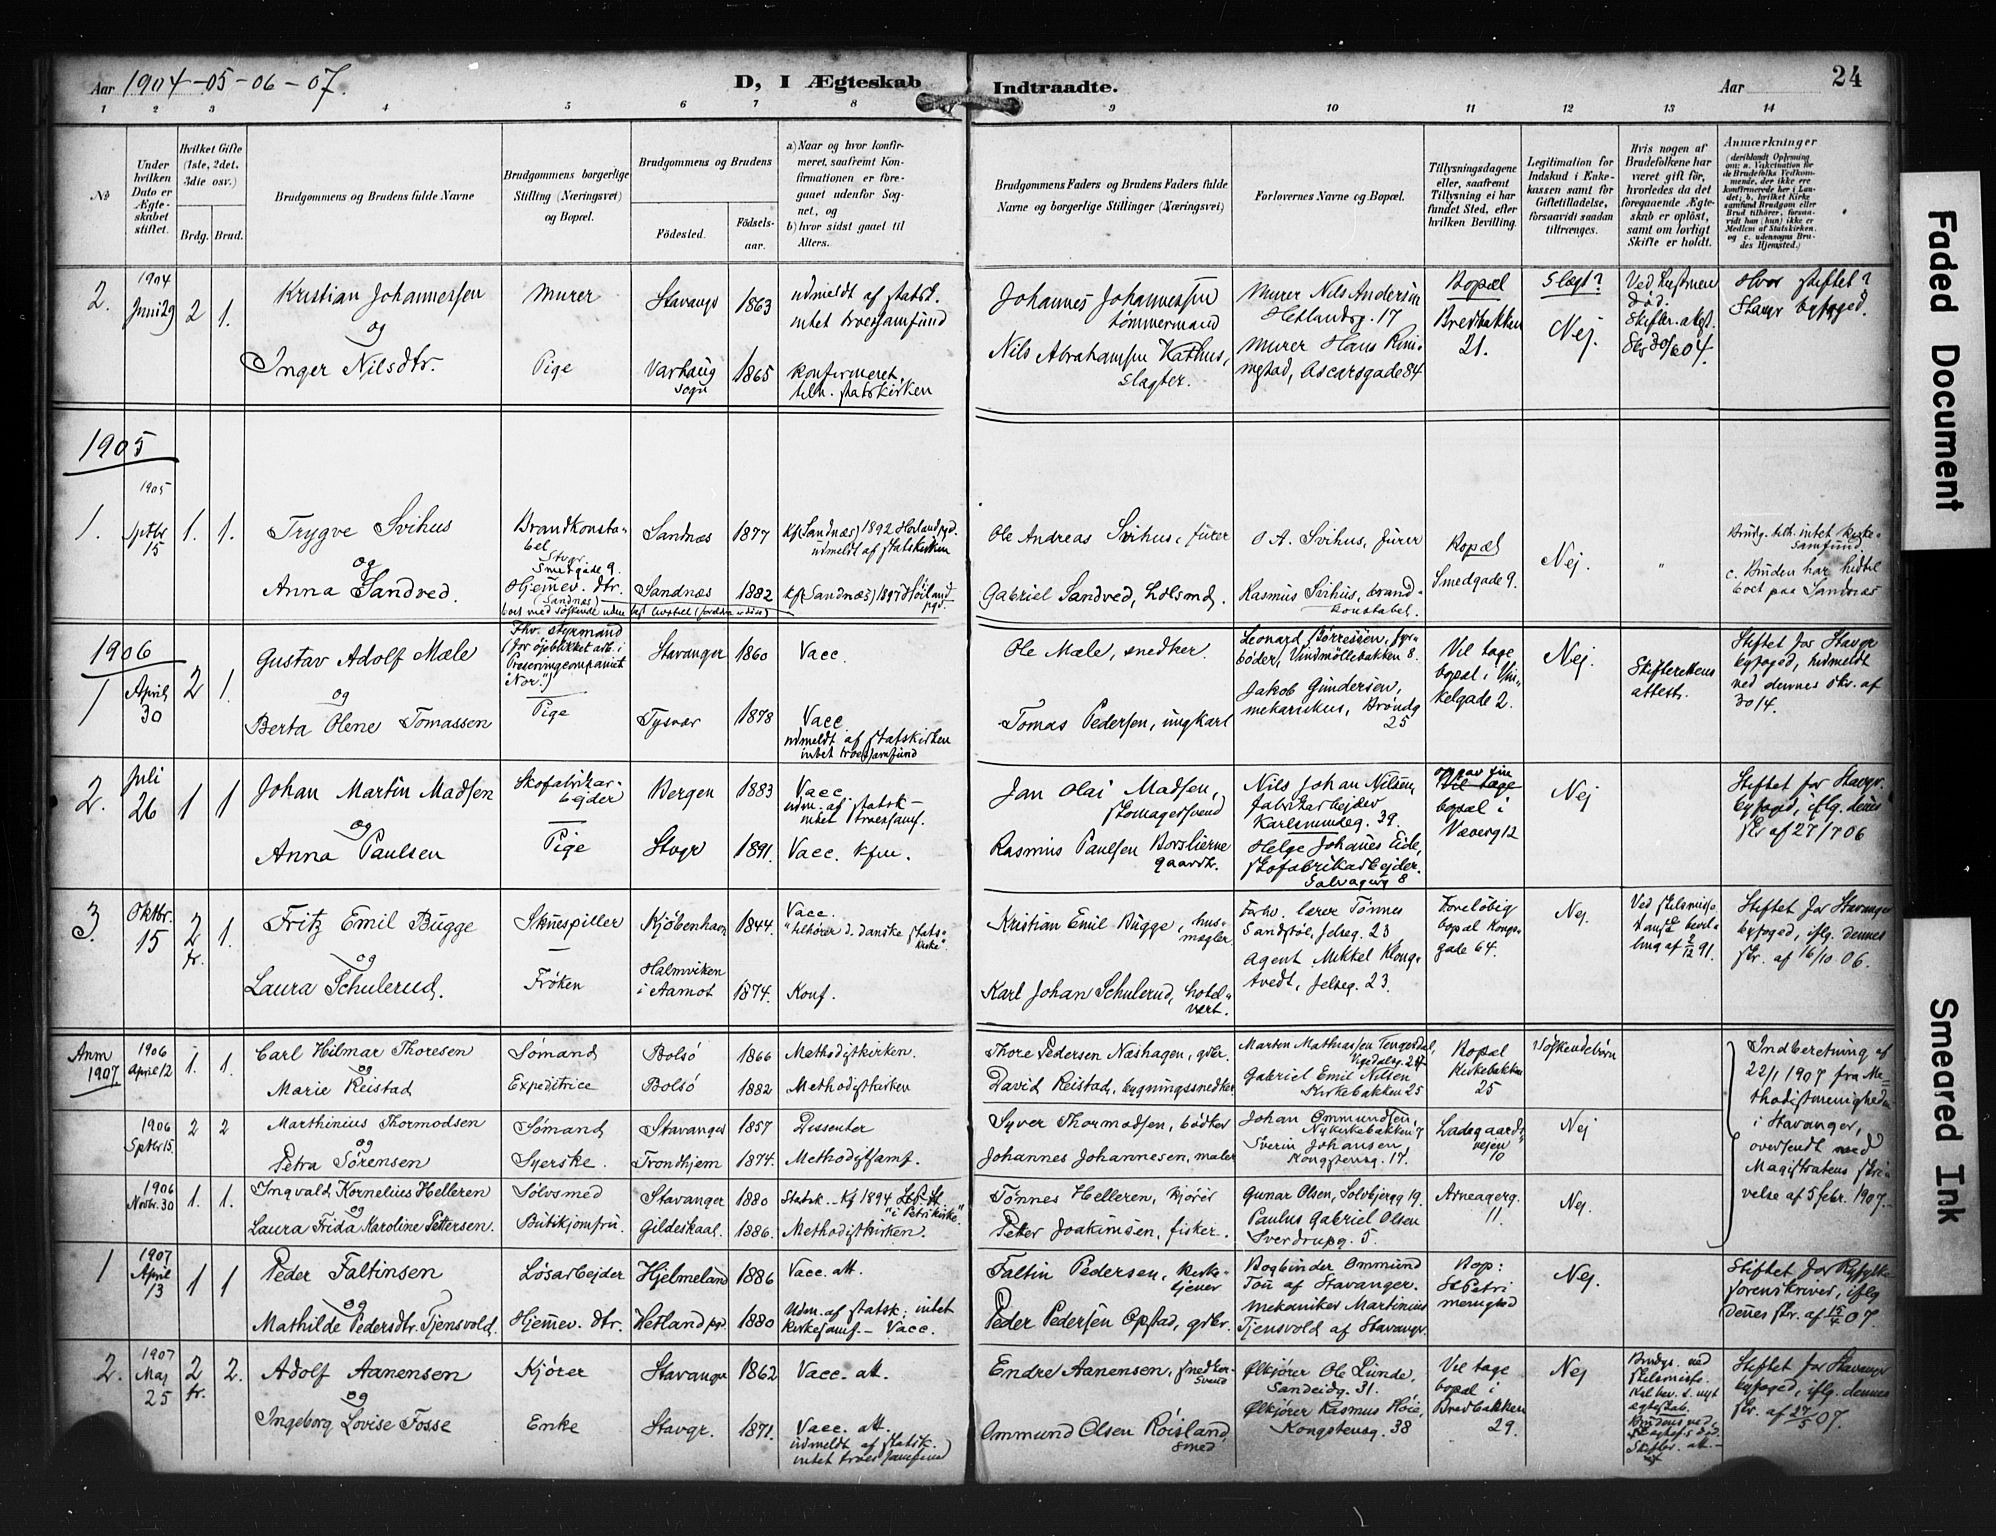 Aar 1904-05-06-07.
D, I Ægteskab Indtraadte.
Aar
24
1 2 3 4 5 6 7 8 9 10 11 12 13 14
№
Under hvilken Dato er Ægteskabet stiftet.
Hvilket Gifte (1ste, 2det, 3die osv.)
Brdg. Brud.
Brudgommens og Brudens fulde Navne
Brudgommens borgerlige Stilling (Næringsvei) og Bopæl.
Brudgommens og Brudens
Fødested. Fødselsaar.
a) Naar og hvor konfirmeret, saafremt Konfirmationen er foregaaet udenfor Sognet, og
b) hvor sidst gaaet til Alters.
Brudgommens Faders og Brudens Faders fulde Navne og borgerlige Stillinger (Næringsvei)
Forlovernes Navne og Bopæl.
Tillysningsdagene eller, saafremt Tillysning ei har fundet Sted, efter hvilken Bevilling.
Legitimation for Indskud i Enkekassen samt for Giftetilladelse, forsaavidt saadan tiltrænges.
Hvis nogen af Brudefolkene har været gift før, hvorledes da det foregaaende Ægteskab er opløst, samt om lovligt Skifte er holdt.
Anmærkninger
(deriblandt Oplysning om: a. Vakcination for de Brudefolks Vedkommende, der ikke ere konfirmerede her i Landet; b. hvilket Kirkesamfund Brudgom eller Brud tilhører, forsaavidt han (hun) ikke er Medlem af Statskirken, og c. udensogns Brudes Hjemsted.)
2. 1904 Juni 29 2 1.
Kristian Johannessen og Inger Nilsdtr.
Murer
Pige
Stavangr 1863
Varhaug sogn 1865
udmeldt af statsk. intet troessamfund
konfirmeret, tilh. statskirken
Johannes Johannessen tømmermand
Nils Abrahamsen Vathus, slagter.
Murer Nils Andersen Hetlandsg. 17
Murer Hans Rimestad, Oscarsgade 84
Bopæl Bredbakken 21.
Slægt? Nej.
Ved hustruens død.
Hvor stiftet? Stavgr byfoged.
1905
1. 1905 Septbr 15 1. 1.
Trygve Svihus og Anna Sandved.
Brandkonstabel Stvgr. Smedgade 9.
Hjemmev. dtr. (Sandnæs)
Sandnæs 1877
Sandnæs 1882
Kf (Sandnæs) 1892 Høiland pgd. udmeldt af statskirken
Kf (Sandnæs) 1897 Høiland pgd.
Ole Andreas Svihus, fører
Gabriel Sandved, holsmd.
O. A. Svihus, fører
Rasmus Svihus, brandkonstabel.
Bopæl Smedgade 9.
Nej.
"
Brudg. tilh. intet kirkesamfund.
c. Bruden har hidtil boet paa Sandnæs
1906
1 April 30 2 1.
Gustav Adolf Mæle og Berta Olene Tomassen
Fhv. styrmand (for øjeblikket arb. i Preservingcompaniet "Nor.")
Pige
Stavanger 1860
Tysvær 1878
Vacc.
Vacc. udmeldt af statskirken intet troessamfund
Ole Mæle, snedker.
Tomas Pedersen, ungkarl
Leonard Børressen, fyrbøder, Vindmøllebakken 8.
Jakob Gundersen, mekanikus, Brøndg 25
Vil tage bopæl i Vinkelgade 2.
Nej.
Skifterettens attest.
Stiftet for Stavgr byfoged, indmeldt ved dennes skr. af 30/4.
2. Juli 26 1 1
Johan Martin Madsen og Anna Paulsen
Skofabrikarbejder
Pige
Bergen 1883
Stvgr 1891.
Vacc. udm. af statsk- intet troessamf.
Vacc. Kfm.
Jan Olai Madsen, skomagersvend
Rasmus Paulsen
Nils Johan Nilsen, fabrikarbejder Karlsmindeg. 39.
Helge Johanes Eide, skofabrikarbejder.
Vil tage bopæl i Væverg 12
Nej
Stiftet for Stavgr. byfoged, iflg. dennes skr af 27/7 06
3. Oktbr. 15 2 fr. 1.
Fritz Emil Bugge og Laura Schulerud.
Skuespiller
Frøken
Kjøbenhavn 1844.
Halmviken i Aamot 1874.
Vacc. "tilhører d. danske statskirke"
Konf.
Kristian Emil Bugge, husmægler
Karl Johan Schulerud, hotelvært.
Forhv. lærer Tønnes Sandstøl, Jelseg. 23
Agent Mikkel Kongtvedt, Jelseg. 23.
Foreløbig bopæl Kongsgade 64.
Nej.
Ved skilsmisse bevilling af 2/12 91.
Stiftet for Stavanger byfoged, iflg. dennes skr. af 16/10. 06.
Anm 1907
1906 April 12 1. 1.
Carl Hilmar Thoresen og Marie Reistad
Sømand
Expeditrice
Bolsø 1866
Bolsø 1882
Methodistkirken.
Methodistkirken
Thore Pedersen Næshagen, gbr.
David Reistad, bygningssnedker
Marten Mathiassen Tengesdal,
Gabriel Emil Nilsen Kirkebakken 25
Bopæl Kirkebakken 25
Søskendebørn
Indberetning af 22/1 1907 fra Methodistmenigheden i Stavanger, oversendt med Magistratens skrivelse af 5 febr. 1907.
1906 Septbr 15. 2 2
Marthinius Thormodsen og Petra Sørensen
Sømand
Syerske.
Stavanger 1857
Trondhjem 1874.
Dissenter
Methodistsamf.
Syver Thormodsen, bødker
Johannes Johannesen, maler
Johan Ommundsen, Nykirkebakken 7
Sverin Johansen Kongstensg. 17.
Ladegaardsveien 10
Nej
1906 Novbr. 30 1. 1.
Ingvald Kornelius Helleren og Laura Frida Karoline Pettersen.
Sølvsmed
Butikjomfru
Stavanger 1880
Gildeskaal. 1886.
Statsk. Kf 1894 "i Petrikirke".
Methodistkirken.
Tønnes Helleren, kjører
Petter Joakimsen, fisker.
Gunar Olsen, Solvbjergg 19.
Paulus Gabriel Olsen Sverdrupg. 5.
Arneagerg. 11.
Nej.
1 1907 April 13 1 1
Peder Faltinsen og Mathilde Pedersdtr. Tjensvold.
Løsarbejder
Hjemmev. dtr.
Hjelmeland 1886
Hetland pgd. 1880
Vacc. att.
Udm. af statsk: intet kirkesamf- Vacc.
Faltin Pedersen, kirketjener
Peder Pedersen Opstad, gbr.
Bogbinder Ommund Tou af Stavanger.
Mekaniker Martinius Tjensvold af Stavangr.
Bop: St Petri menighed
Nej.
Stiftet for Ryfylke sorenskriver, iflg dennes skr. af 15/4 07.
2. 1907 Maj 25 2 fr. 2.
Adolf Aanensen og Ingeborg Lovise Fosse
Kjører
Enke
Stavanger 1862
Stavgr. 1871.
Vacc. att.
Vacc. att. udmeldt af statsk. intet troessamfund
Endre Aanensen, snedkersvend
Ommund Olsen Røisland, smed
Ølkjører Ole Lunde, Sandeidg. 31.
Ølkjører Rasmus Høie, Kongstensg. 38
Vil tage bopæl i Bredbakken 29.
Nej
Brudg. ved skilsmisse.
Stiftet for Stavangr byfoged, iflg. dennes skr. af 27/5 07.
Faded Document
Smeared Ink